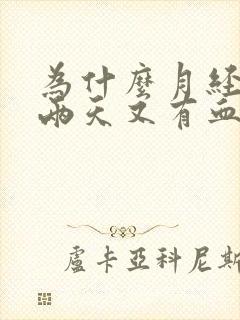 為什麼月經
兩天又有血
盧卡亞科尼斯